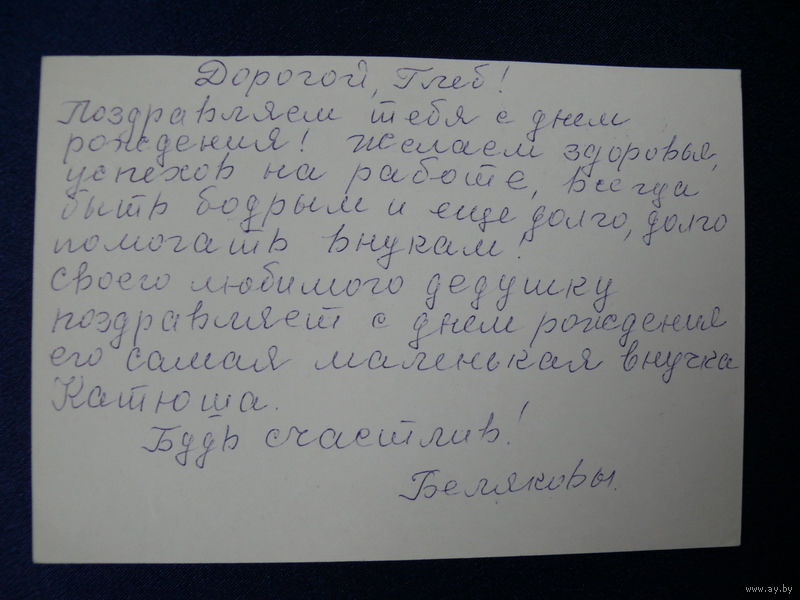 Дорогой, Глеб!
Поздравляем тебя с днем
рождения! Желаем здоровья,
успехов на работе, всегда
быть бодрым и еще долго, долго
помогать внукам!
Своего любимого дедушку
поздравляет с днем рождения
его самая маленькая внучка
Катюша.
Будь счастлив!
Беляковы.
www.ay.by